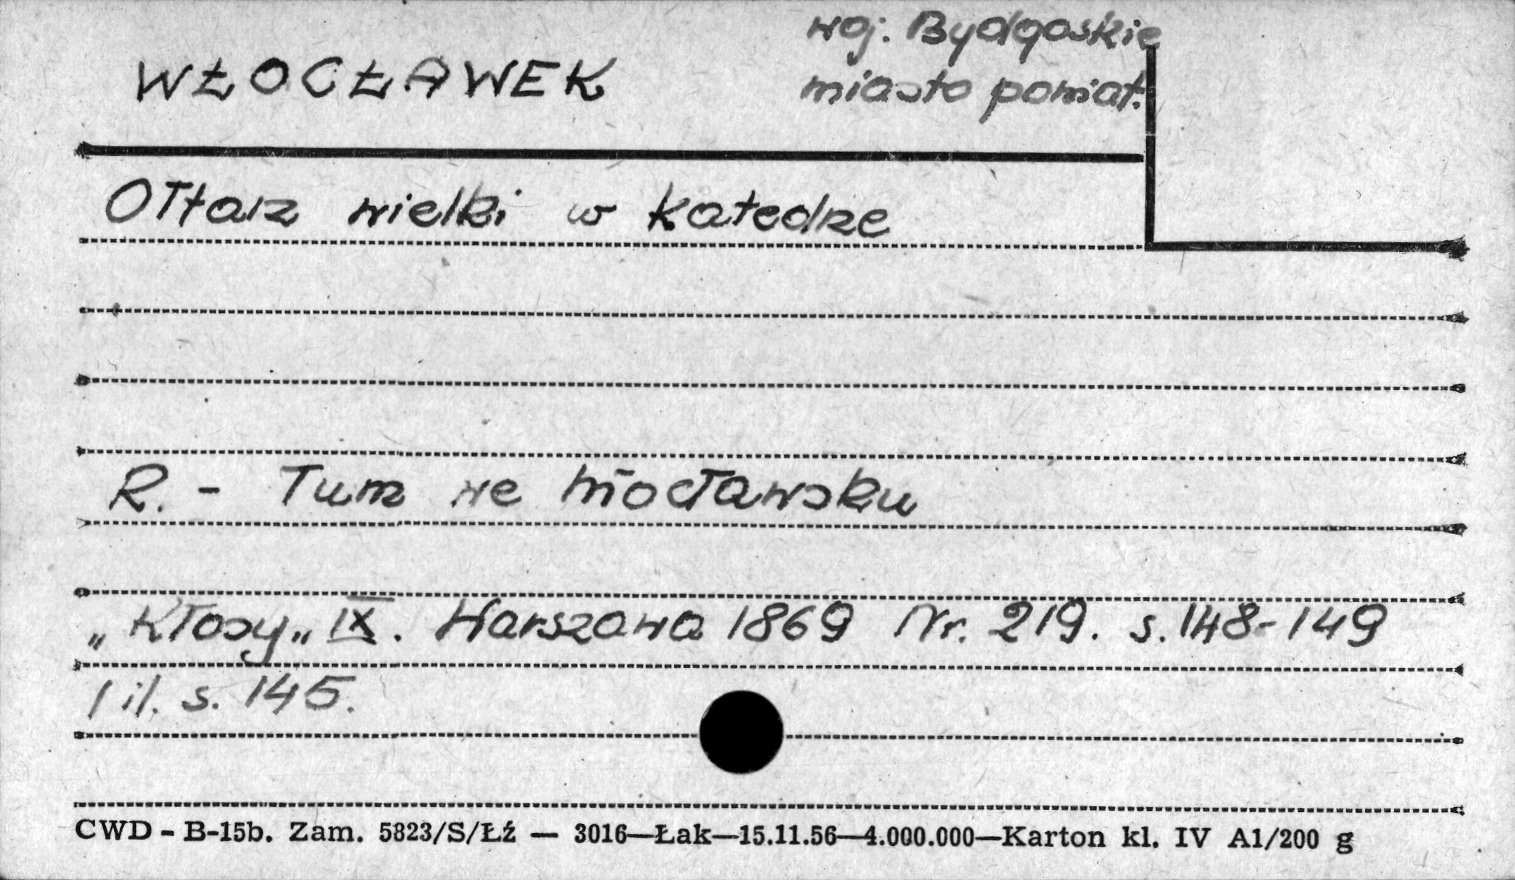 WŁOCŁAWEK
woj. Bydgoskie
miasto powiat.
Ołtarz wielki w katedrze
R. - Tum we Włocławsku
„Kłosy„ IX. Warszawa 1869 Nr. 219. s. 148-149
1 il. s. 145.
CWD - B-15b. Zam. 5823/S/Łź — 3016—Łak—15.11.56—4.000.000—Karton kl. IV A1/200 g